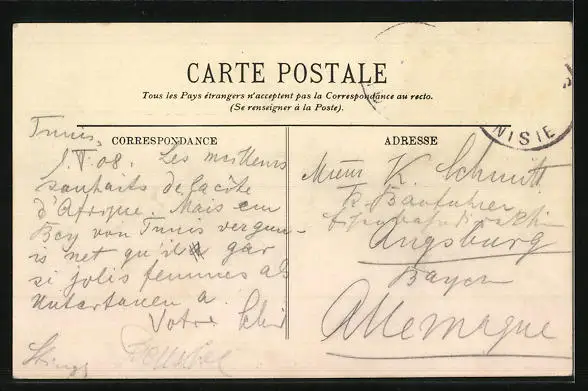 CARTE POSTALE
Tous les Pays étrangers n'acceptent pas la Correspondance au recto.
(Se renseigner à la Poste).
CORRESPONDANCE
ADRESSE
NISIE
Tunis,
Les meilleurs
souhaits de la côte
d'Afrique. Mais em
Bey von Tunis vergun-
is net qu'il a gar
si jolis femmes als
Untertanen a.
Votre
K. Schmitt
K. Bauführer
Augsburg
Bayern
Allemagne